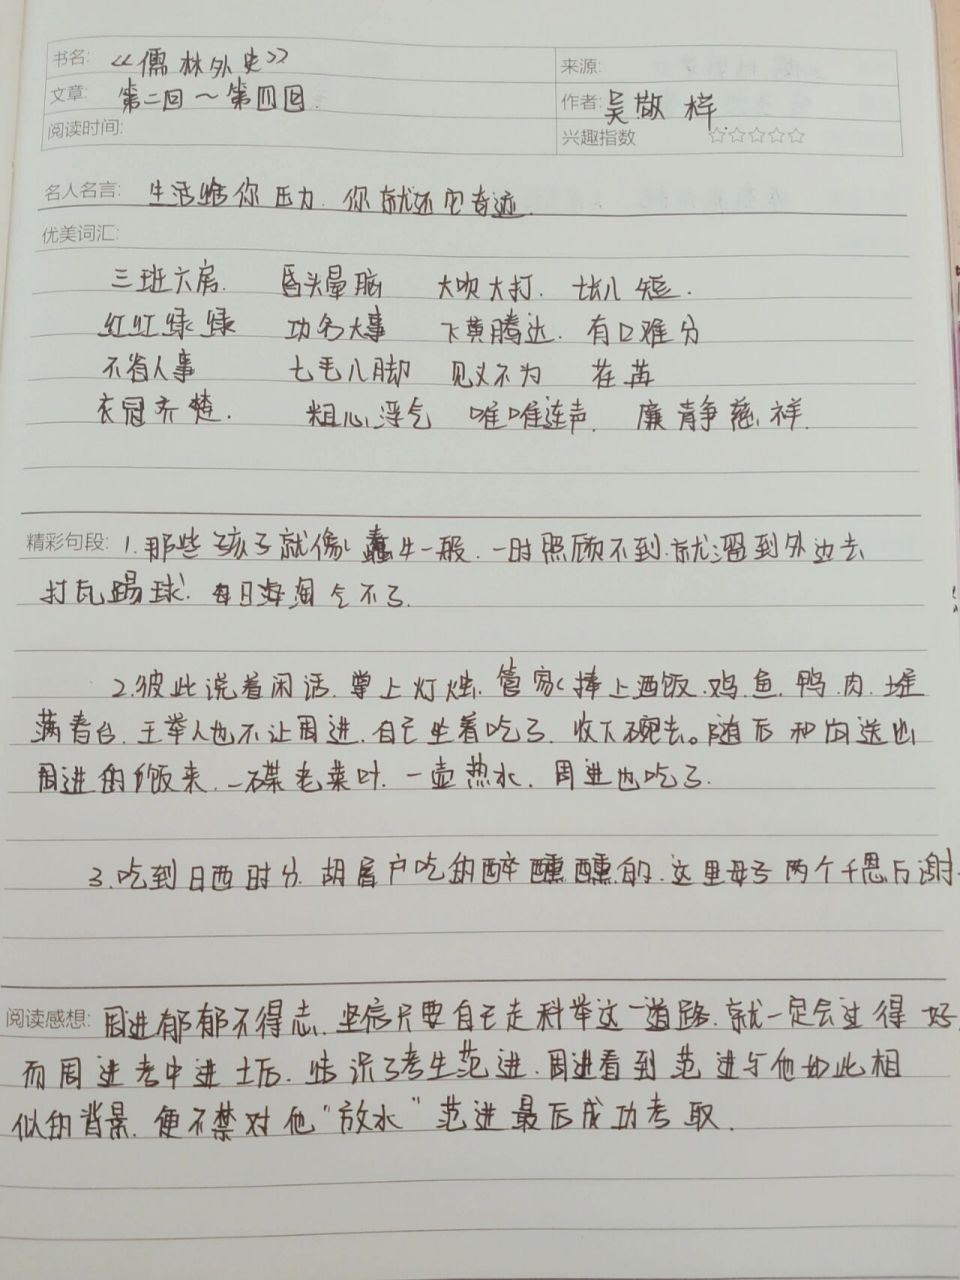 书名: 《儒林外史》 来源:
文章: 第二回～第四回. 作者: 吴敬梓.
阅读时间: 兴趣指数 ☆☆☆☆☆
名人名言: 生活给你压力. 你就还它奇迹.
优美词汇:
三班六房. 昏头晕脑 大吹大打. 短.
红红绿绿 功名大事 飞黄腾达. 有口难分
不省人事 七毛八脚 见义不为 荏苒
衣冠齐楚. 粗心浮气 唯唯连声. 廉静慈祥.
精彩句段: 1.那些孩子就像蠢牛一般. 一时照顾不到.就溜到外边去
打瓦踢球. 每日淘气不了.
2.彼此说着闲话.掌上灯烛.管家捧上酒饭.鸡.鱼.鸭.肉.堆
满春台.王举人也不让周进.自己坐着吃了.收下碗去。随后和尚送出
周进的饭来.一碟老菜叶.一壶热水.周进也吃了.
3.吃到日西时分.胡屠户吃的醉醺醺的.这里母子两个千恩万谢.
阅读感想: 周进郁郁不得志.坚信只要自己走科举这一道路.就一定会过得好.
而周进考中进士后.结识了考生范进.周进看到范进与他如此相
似的背景.便不禁对他“放水”范进最后成功考取.